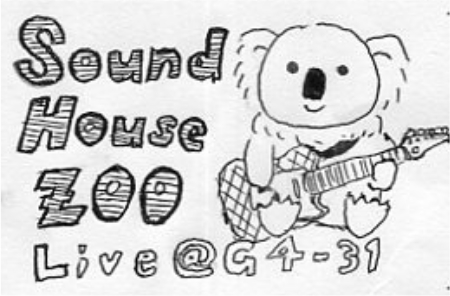 Sound
House
ZOO
Live@G4-31